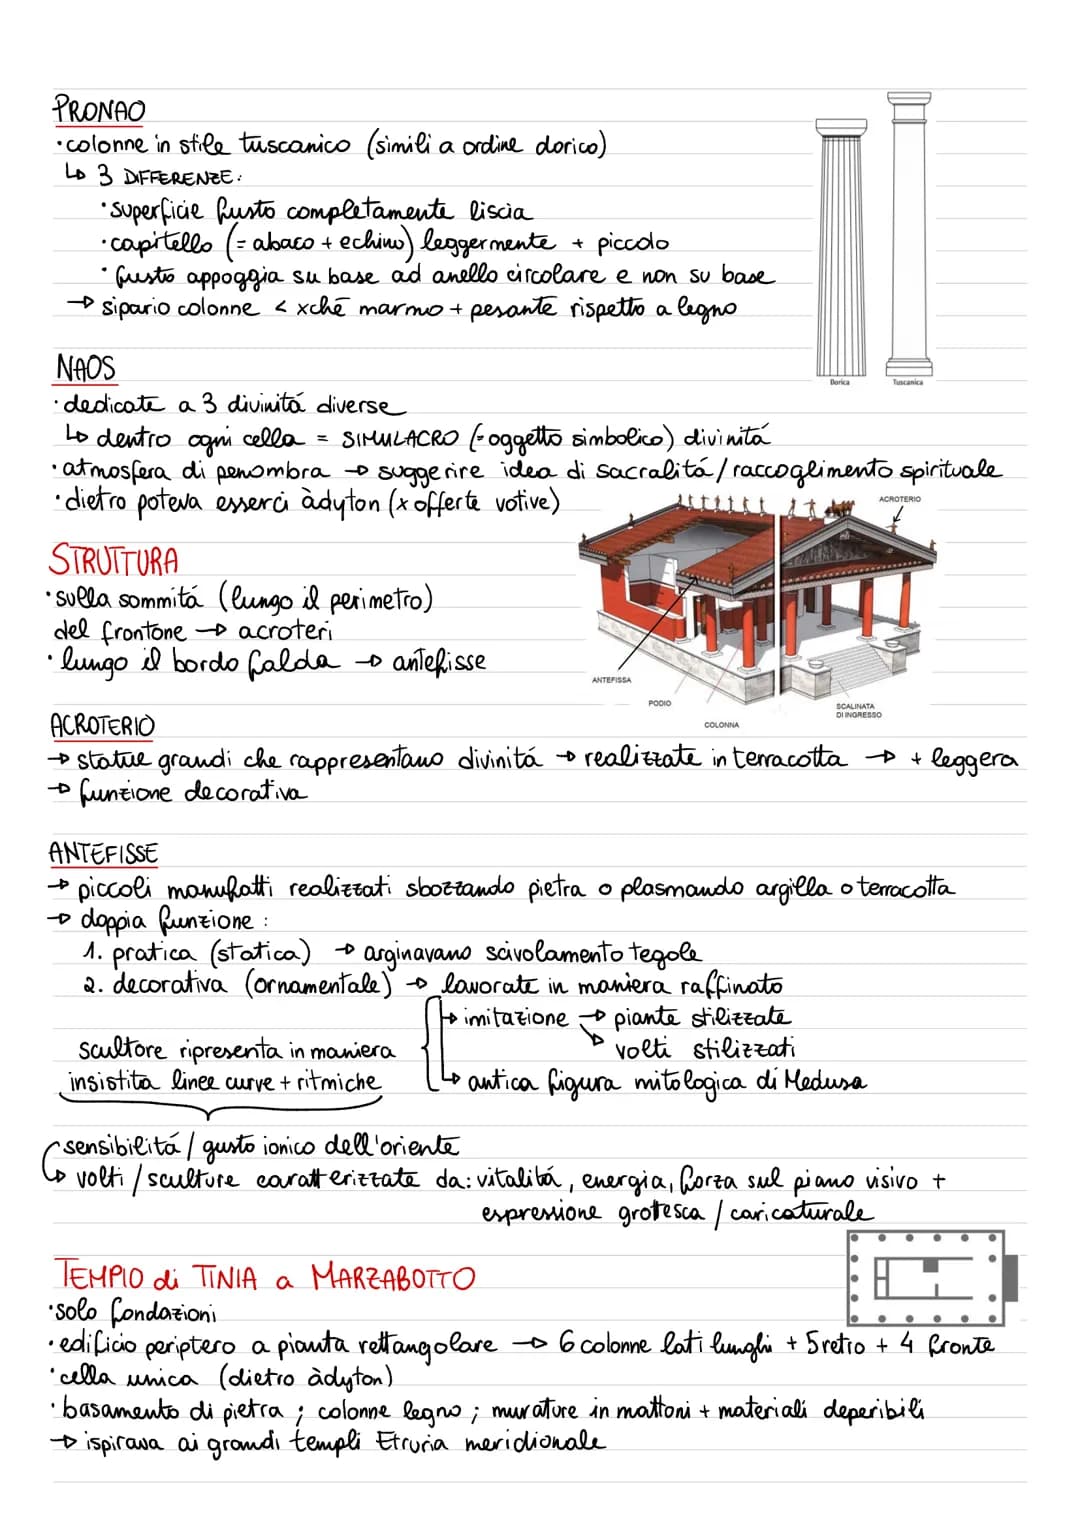 PRONAO
•colonne in stile tuscanico (simili a ordine dorico)
↳ 3 DIFFERENZE:
•superficie fusto completamente liscia
•capitello (= abaco + echino) leggermente + piccolo
•fusto appoggia su base ad anello circolare e non su base
→ sipario colonne < xché marmo + pesante rispetto a legno
Dorica
Tuscanica
NAOS
•dedicate a 3 divinitá diverse
↳ dentro ogni cella = SIMULACRO (=oggetto simbolico) divinitá
•atmosfera di penombra → suggerire idea di sacralitá/raccoglimento spirituale
•dietro poteva esserci àdyton (x offerte votive)
ACROTERIO
STRUTTURA
•sulla sommitá (lungo il perimetro)
del frontone → acroteri
•lungo il bordo falda → antefisse
ANTEFISSA
PODIO
COLONNA
SCALINATA
DI INGRESSO
ACROTERIO
→ statue grandi che rappresentano divinitá → realizzate in terracotta → + leggera
→ funzione decorativa
ANTEFISSE
→ piccoli manufatti realizzati sbozzando pietra o plasmando argilla o terracotta
→ doppia funzione :
1. pratica (statica) → arginavano scivolamento tegole
2. decorativa (ornamentale) → lavorate in maniera raffinato
↳ imitazione → piante stilizzate
↘ volti stilizzati
scultore ripresenta in maniera
insistita linee curve + ritmiche
↳ antica figura mitologica di Medusa
sensibilitá / gusto ionico dell'oriente
↳ volti / sculture caratterizzate da: vitalitá, energia, forza sul piano visivo +
espressione grottesca / caricaturale
TEMPIO di TINIA a MARZABOTTO
•solo fondazioni
•edificio periptero a pianta rettangolare → 6 colonne lati lunghi + 5 retro + 4 fronte
•cella unica (dietro àdyton)
•basamento di pietra ; colonne legno ; murature in mattoni + materiali deperibili
→ ispirava ai grandi templi Etruria meridionale